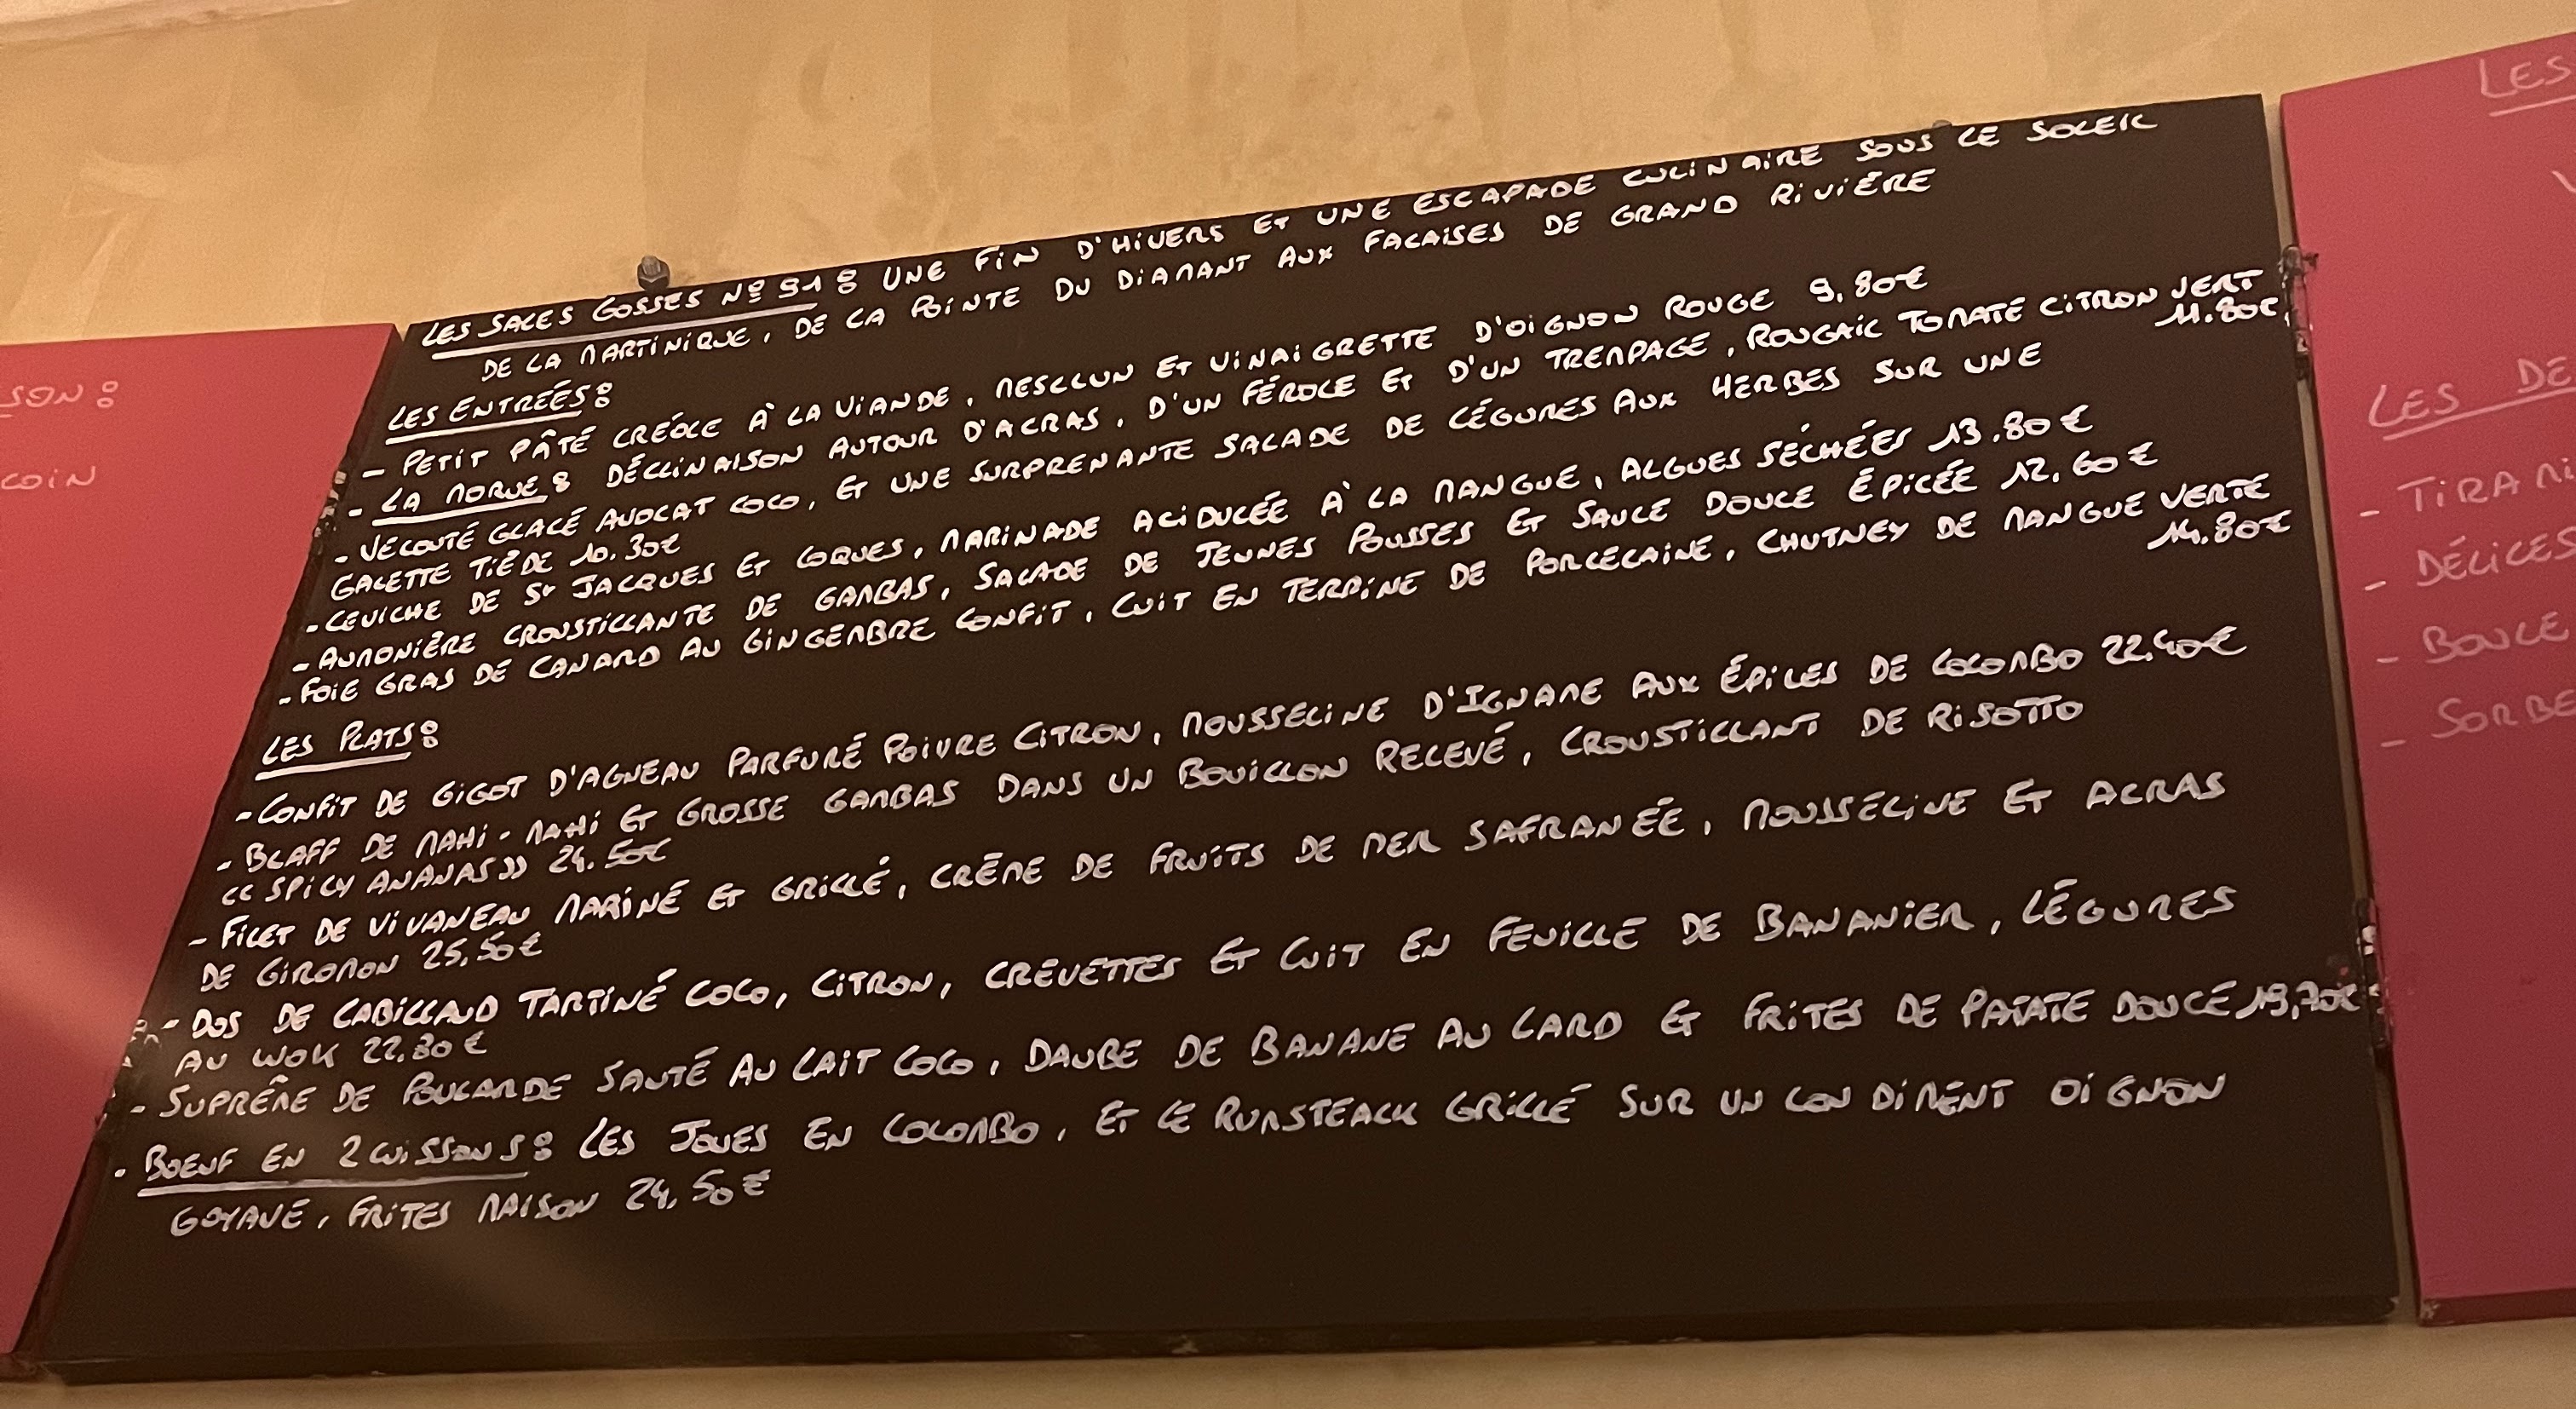 LES SALES GOSSES N° 91 : UNE FIN D'HIVERS ET UNE ESCAPADE CULINAIRE SOUS LE SOLEIL
DE LA MARTINIQUE, DE LA POINTE DU DIAMANT AUX FALAISES DE GRAND RIVIÈRE
LES ENTRÉES :
- PETIT PÂTÉ CRÉOLE À LA VIANDE, MESCLUN ET VINAIGRETTE D'OIGNON ROUGE 9,80€
- LA MORUE : DÉCLINAISON AUTOUR D'ACRAS, D'UN FÉROCE ET D'UN TREMPAGE, ROUGAIL TOMATE CITRON VERT
11.80€
- VELOUTÉ GLACÉ AVOCAT COCO, ET UNE SURPRENANTE SALADE DE LÉGUMES AUX HERBES SUR UNE
GALETTE TIÈDE 10.30€
- CEVICHE DE ST JACQUES ET COQUES, MARINADE ACIDULÉE À LA MANGUE, ALGUES SÉCHÉES 13.80€
- AUMONIÈRE CROUSTILLANTE DE GAMBAS, SALADE DE JEUNES POUSSES ET SAUCE DOUCE ÉPICÉE 12.60€
- FOIE GRAS DE CANARD AU GINGEMBRE CONFIT, CUIT EN TERRINE DE PORCELAINE, CHUTNEY DE MANGUE VERTE
14.80€
LES PLATS :
- CONFIT DE GIGOT D'AGNEAU PARFUMÉ POIVRE CITRON, MOUSSELINE D'IGNAME AUX ÉPICES DE COLOMBO 22.40€
- BLAFF DE MAHI-MAHI ET GROSSE GAMBAS DANS UN BOUILLON RELEVÉ, CROUSTILLANT DE RISOTTO
<< SPICY ANANAS >> 24.50€
- FILET DE VIVANEAU MARINÉ ET GRILLÉ, CRÊME DE FRUITS DE MER SAFRANÉE, MOUSSELINE ET ACRAS
DE GIROMON 25,50€
- DOS DE CABILLAUD TARTINÉ COCO, CITRON, CREVETTES ET CUIT EN FEUILLE DE BANANIER, LÉGUMES
AU WOK 22.80€
- SUPRÊME DE POULARDE SAUTÉ AU LAIT COCO, DAUBE DE BANANE AU LARD ET FRITES DE PATATE DOUCE 19,70€
- BOEUF EN 2 CUISSONS : LES JOUES EN COLOMBO, ET LE RUMSTEACK GRILLÉ SUR UN CONDIMENT OIGNON
GOYAVE, FRITES MAISON 24,50€
SON :
COIN
LES
LES DE
- TIRAMI
- DÉLICES
- BOULE
- SORBE